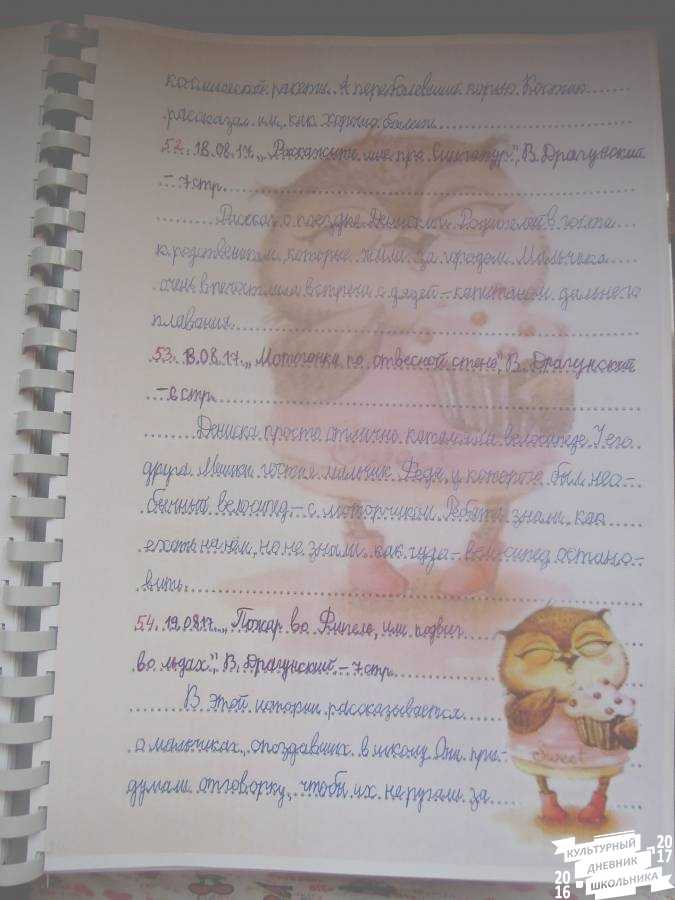 космической ракеты. А переболевшие корью Костик
рассказал им, как хорошо болеть.
52. 18.08.17. „Расскажите мне про Сингапур", В. Драгунский
– 7 стр.
Рассказ о поездке Дениски с Родителей в гости
к родственникам, которые жили за городом. Мальчика
очень впечатлила встреча с дядей – капитаном дальнего
плавания.
53. 18.08.17. „Мотогонки по отвесной стене", В. Драгунский
– 6 стр.
Дениска просто отлично катался на велосипеде. У его
друга Мишки гостил мальчик Федя, у которого был нео-
бычный велосипед – с моторчиком. Ребята знали как
ехать на нём, но не знали как чудо – велосипед остано-
вить.
54. 19.08.17. „Пожар во Флигеле, или подвиг
во льдах", В. Драгунский – 7 стр.
В этой истории рассказывается
о мальчиках, опоздавших в школу. Они при-
думали отговорку, чтобы их не ругали за
Sweet
КУЛЬТУРНЫЙ
ДНЕВНИК
ШКОЛЬНИКА
2016
2017